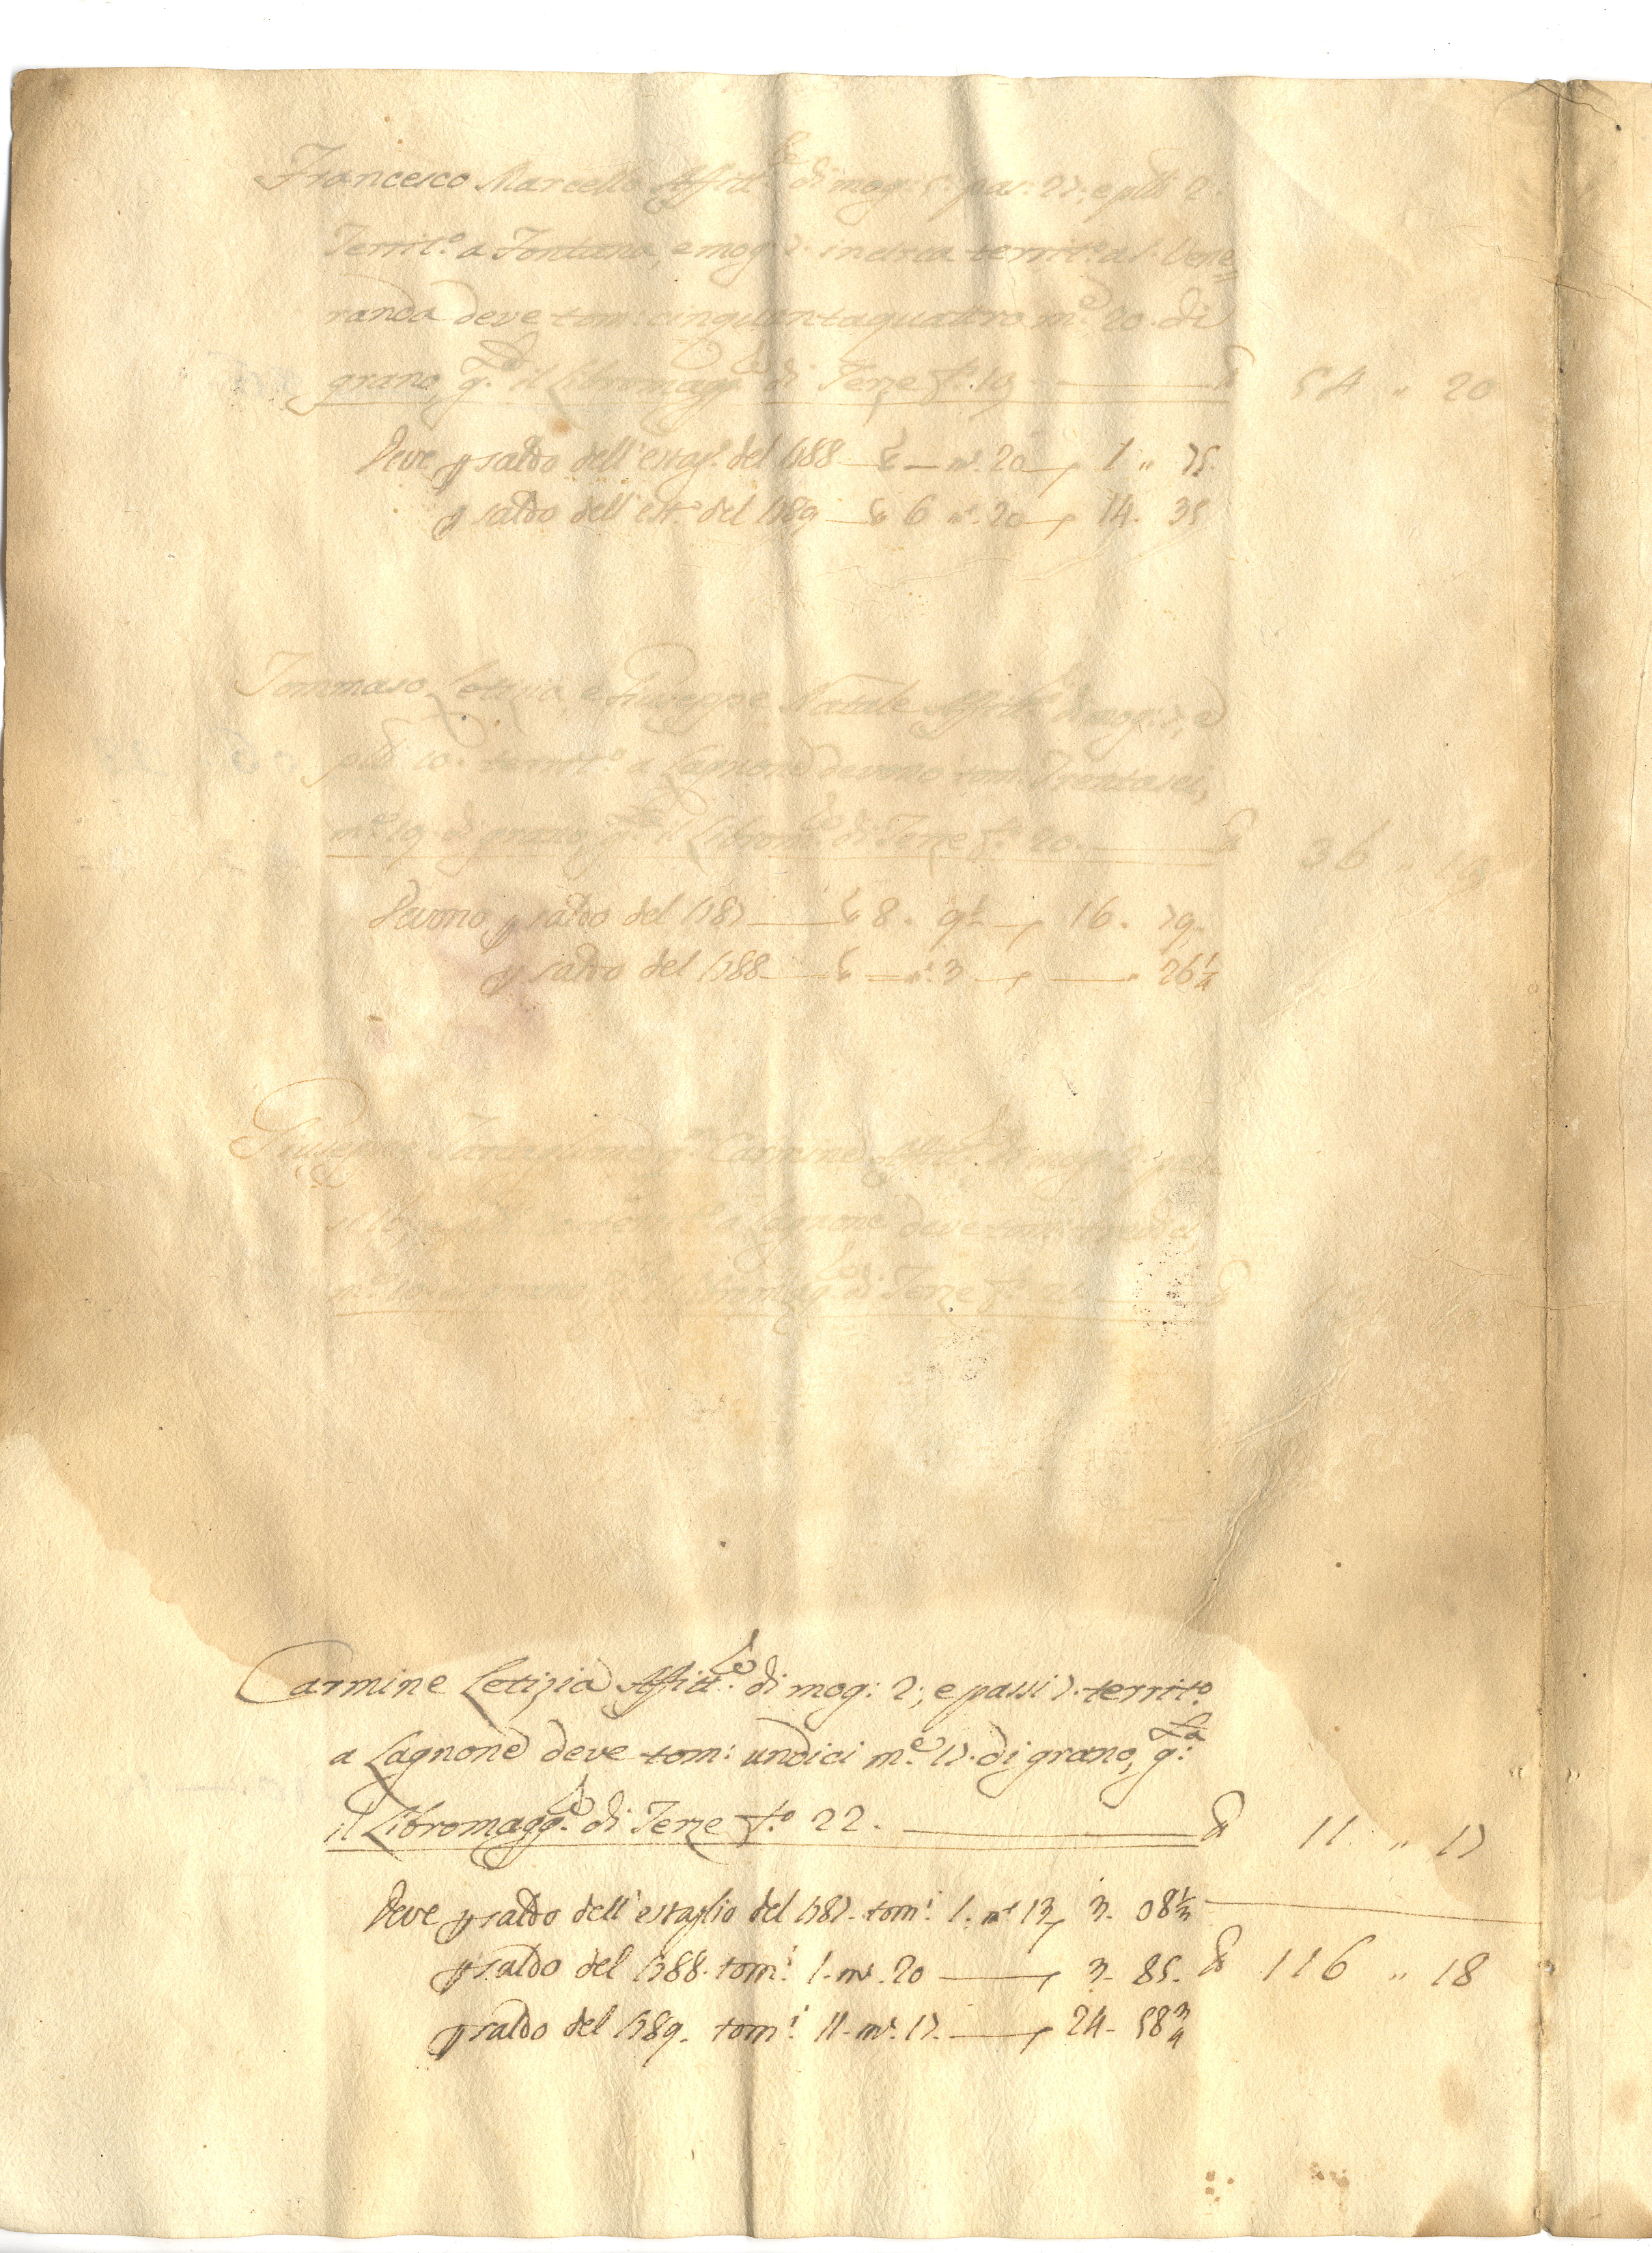 Francesco Marcello Affitt.re di mog: 5. pas: 27: e pllī 2.
Territ.o a Fontana, e mog: 7. in circa territ.o a S. Vene=
randa deve tom: cinquantaquattro m.e 20. di
grano, g.ta il Libromagg.re di Terze f.o 19. 54 " 20
Deve p saldo dell'estag.o del 1788 — m.e 20 — 1 " 75.
p saldo dell'est.o del 1789 — 6 m.e 20 — 14. 35
Tommaso Letizia, e Giuseppe Natale Affitt.ri di mog: 7; e
pllī 10. territ.o a Lagnone devono tom: Trentasei,
m.e 19. di grano, g.ta il Librom.re di Terze f.o 20. 36 " 19
Devono p saldo del 1787 — 8. 9½ — 16. 79.
p saldo del 1788 — m.e 3 — 26¼
Giuseppe q.m Carmine Affitt.re di mog:
a Lagnone deve tom:
di Terze f.o 21.
Carmine Letizia Affitt.re di mog: 2; e passi 7. territ.o
a Lagnone deve tom: undici m.e 17. di grano, g.ta
il Libromagg.re di Terze f.o 22. 11 " 17
Deve p saldo dell'estaglio del 1787. tom: 1. m.e 13, 3. 08⅓
p saldo del 1788. tom: 1. m.e 20 — 3. 85. 116 " 18
p saldo del 1789. tom: 11. m.e 17. — 24. 58¾